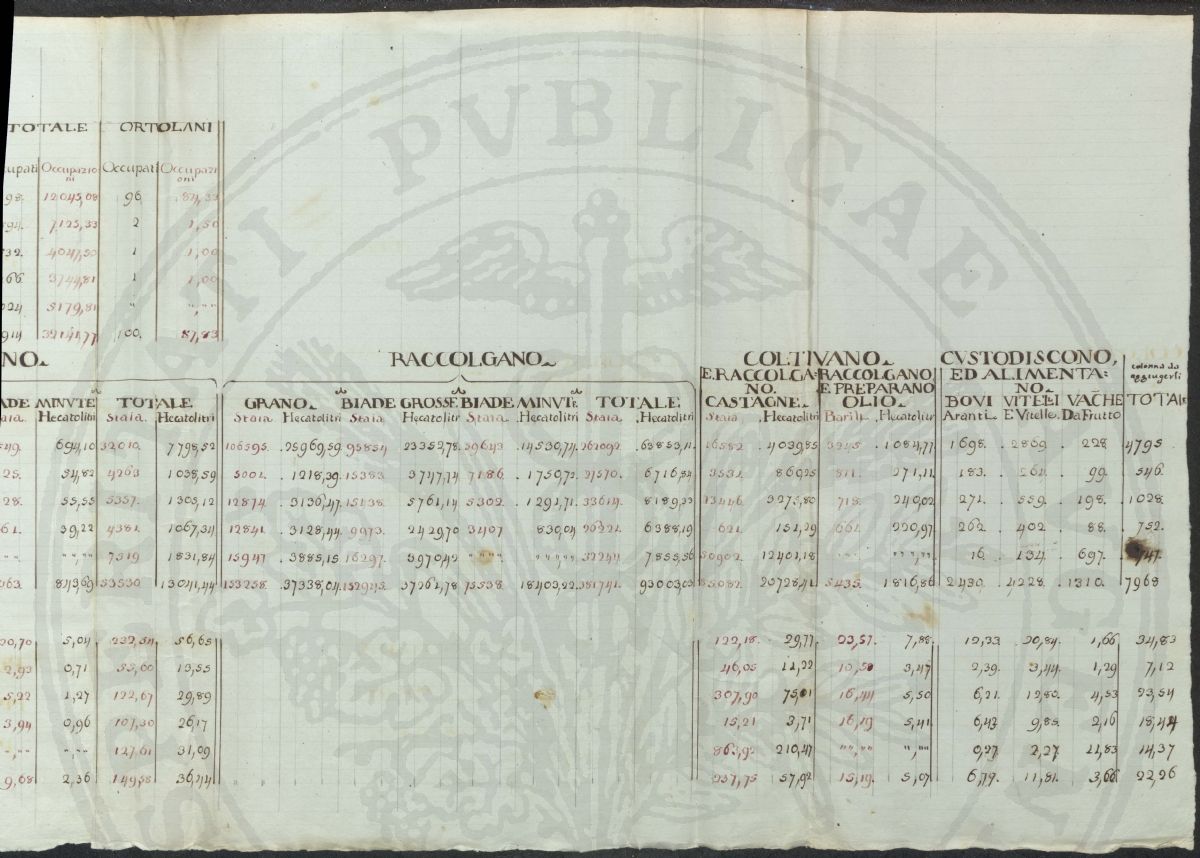 PVBLICAE
TOTALE ORTOLANI
cupati Occupazioni Occupati Occupazioni
98. 12045,08 96 84,33
7125,33 2 1,50
732. 4047,50 1 1,00
66 3744,81 1 1,00
024 5179,81 " "," "
914 100. 87,83
NO RACCOLGANO COLTIVANO CVSTODISCONO,
E RACCOLGA= RACCOLGANO ED ALIMENTA= colonna da
NO E PREPARANO NO aggiugerli
ADE MINVTE TOTALE GRANO BIADE GROSSE BIADE MINVTE TOTALE CASTAGNE OLIO BOVI VITELI VACHE TOTALE
Staia Hecatolitri Staia Hecatolitri Staia Hecatolitri Staia Hecatolitri Staia Hecatolitri Staia Hecatolitri Staia Hecatolitri Barili Hecatolitri Aranti E Vitelle Da Frutto
549. 694,10 32010. 7798,52 106595. 25969,59 95854 23352,78 59643 14530,74 262092. 63853,11 16582 4039,85 3245 1084,77 1698. 2869 228 4795
25. 34,82 4263 1038,59 5001. 1218,39 15383 3747,74 7186 1750,72 27570. 6716,84 3532. 860,25 811. 271,11 183. 264. 99. 546.
28. 55,55 5357. 1305,12 12874 3136,47 15438. 3761,14 5302 1291,71 33614. 8189,33 13446 3275,80 718. 240,02 271. 559. 198. 1028
61. 39,22 4381. 1067,34 12841 3128,44 9973. 2429,70 3407 830,04 26221. 6388,19 621. 151,29 661. 220,97 262. 402 88. 752.
" " "," " 7519 1831,84 15947 3885,15 16297. 3970,42 " " "," " 32244 7855,56 50902. 12401,18 " " "," " 16. 134 697. 847.
563 53530. 13041,44 153258. 37338,04 152945. 37261,78 75538 18403,22 381741. 93003,03 85082. 20728,41 5435 1816,86 2430. 4228. 1310. 7968
20,70 5,04 232,54 56,65 122,18. 29,77 23,57. 7,88 12,33 20,84. 1,66 34,83
2,93 0,71 55,60 13,55 46,05 11,22 10,50 3,47 2,39. 3,44. 1,29 7,12
5,22 1,27 122,67 29,89 307,90 75,01 16,44 5,50 6,21. 12,80. 4,53 23,54
3,94 0,96 107,30 26,17 15,21 3,71 16,19 5,41 6,43 9,85. 2,16 18,44
" "," " " "," " 127,61 31,09 863,92 210,47 " "," " " "," " 0,27. 2,27 11,83 14,37
9,68 2,36 149,58 36,44 237,75 57,92 15,19. 5,07 6,79. 11,81. 3,66 22,26